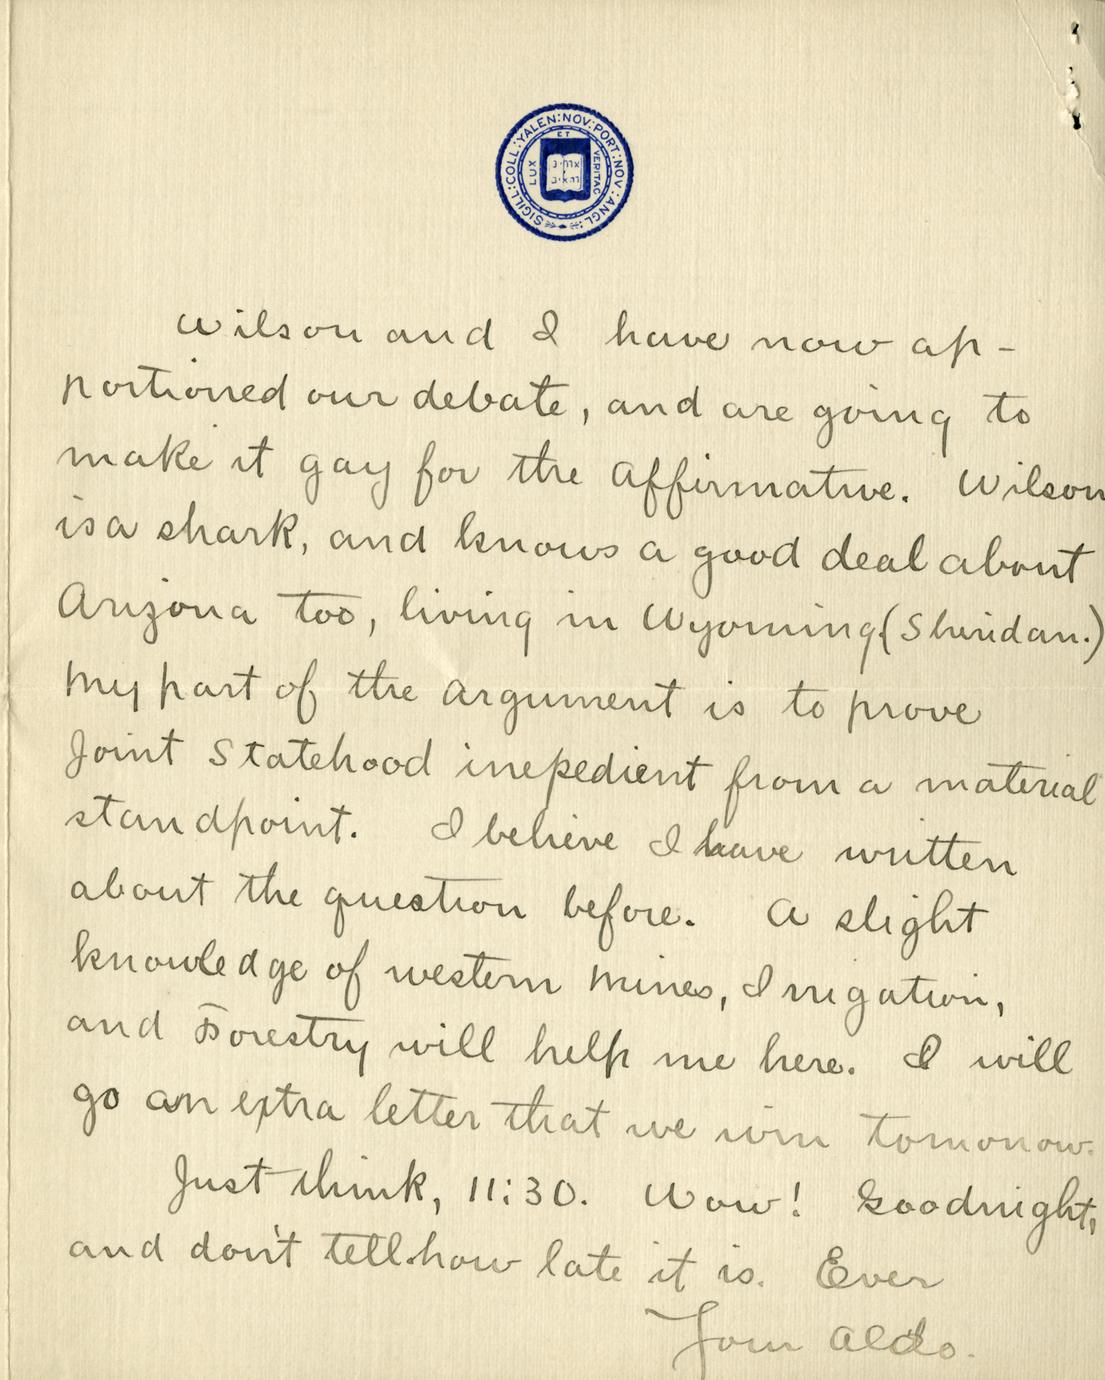 SIGILL:COLL:YALEN:NOV:PORT:NOV:ANGL:
LUX ET VERITAS
Wilson and I have now ap-
portioned our debate, and are going to
make it gay for the Affirmative. Wilson
is a shark, and knows a good deal about
Arizona too, living in Wyoming (Sheridan.)
My part of the Argument is to prove
Joint Statehood inexpedient from a material
standpoint. I believe I have written
about the question before. A slight
knowledge of western Mines, Irrigation,
and Forestry will help me here. I will
go an extra letter that we win tomorrow.
Just think, 11:30. Wow! Goodnight,
and don't tell how late it is. Ever
Your Aldo.